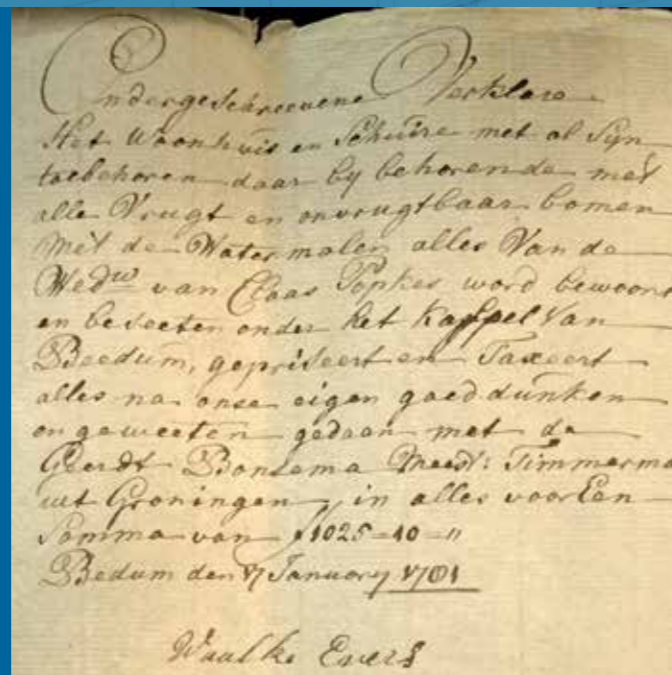 Ondergeschreevene Verklare
Het Woonhuis en Schuire met al Sijn
toebehoren daar by behorende met
alle Vrugt en onvrugtbaar bomen
Met de Watermolen alles Van de
Wed.w van Claas Popkes word bewoont
en beseeten onder het Kaspel Van
Beedum, gepriseert en Taxeert
alles na onse eigen goed dunken
en geweeten gedaan met de
Geerdt Bontema Meest: Timmerma
uit Groningen in alles voor Een
Somma van f 1025=10="
Bedum den 17 January
Evers